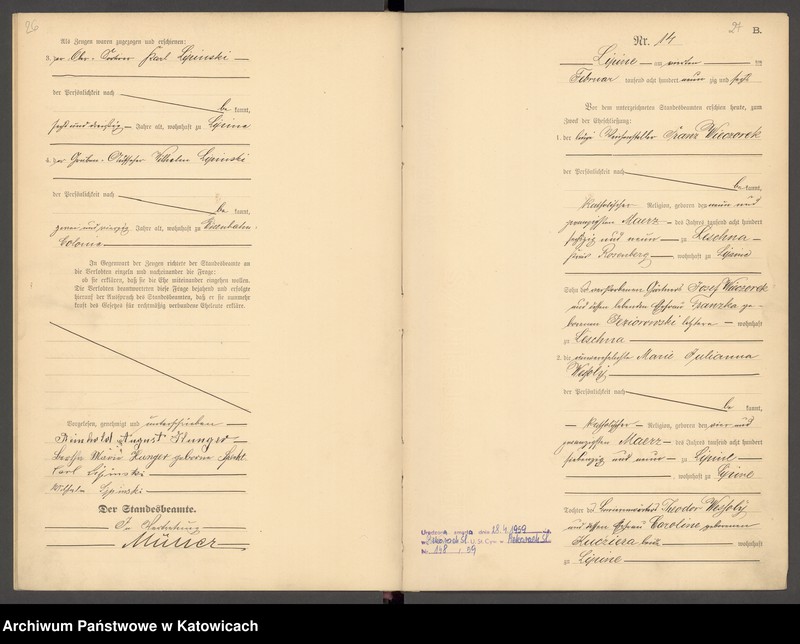 26
Als Zeugen waren zugezogen und erschienen:
3. der Ober-Karl Lipinski
der Persönlichkeit nach
be kannt,
sechs und dreißig Jahre alt, wohnhaft zu Lipine
4. der Gruben-Wilhelm Lipinski
der Persönlichkeit nach
be kannt,
zwei und vierzig Jahre alt, wohnhaft zu
Colonie
In Gegenwart der Zeugen richtete der Standesbeamte an
die Verlobten einzeln und nacheinander die Frage:
ob sie erklären, daß sie die Ehe miteinander eingehen wollen.
Die Verlobten beantworteten diese Frage bejahend und erfolgte
hierauf der Ausspruch des Standesbeamten, daß er sie nunmehr
kraft des Gesetzes für rechtmäßig verbundene Eheleute erkläre.
Vorgelesen, genehmigt und unterschrieben
Reinhold August Kunger
Marie Kunger geborene
Karl Lipinski
Wilhelm Lipinski
Der Standesbeamte.
In Vertretung
Müller
B.
Nr. 14
Lipine am ten
Februar tausend acht hundert neun zig und sechs
Vor dem unterzeichneten Standesbeamten erschien heute, zum
Zweck der Eheschließung:
1. der Franz Wieczorek
der Persönlichkeit nach
be kannt,
katholischer Religion, geboren den neun und
zwanzigsten Maerz des Jahres tausend acht hundert
sechszig und neun zu Leschna
Kreis Rosenberg, wohnhaft zu Lipine
Sohn des verstorbenen Gärtners Josef Wieczorek
und dessen lebenden Ehefrau Franzka ge-
borenen Jeziorowski letztere wohnhaft
zu Leschna
2. die unverehelichte Marie Julianna
Wessoly
der Persönlichkeit nach
be kannt,
katholischer Religion, geboren den vier und
zwanzigsten Maerz des Jahres tausend acht hundert
siebenzig und neun zu Lipine
, wohnhaft zu Lipine
Tochter des Theodor Wessoly
und dessen Ehefrau Caroline geborenen
Kucziera beide wohnhaft
zu Lipine
28.4.1959
Nr. 148 / 59
Archiwum Państwowe w Katowicach